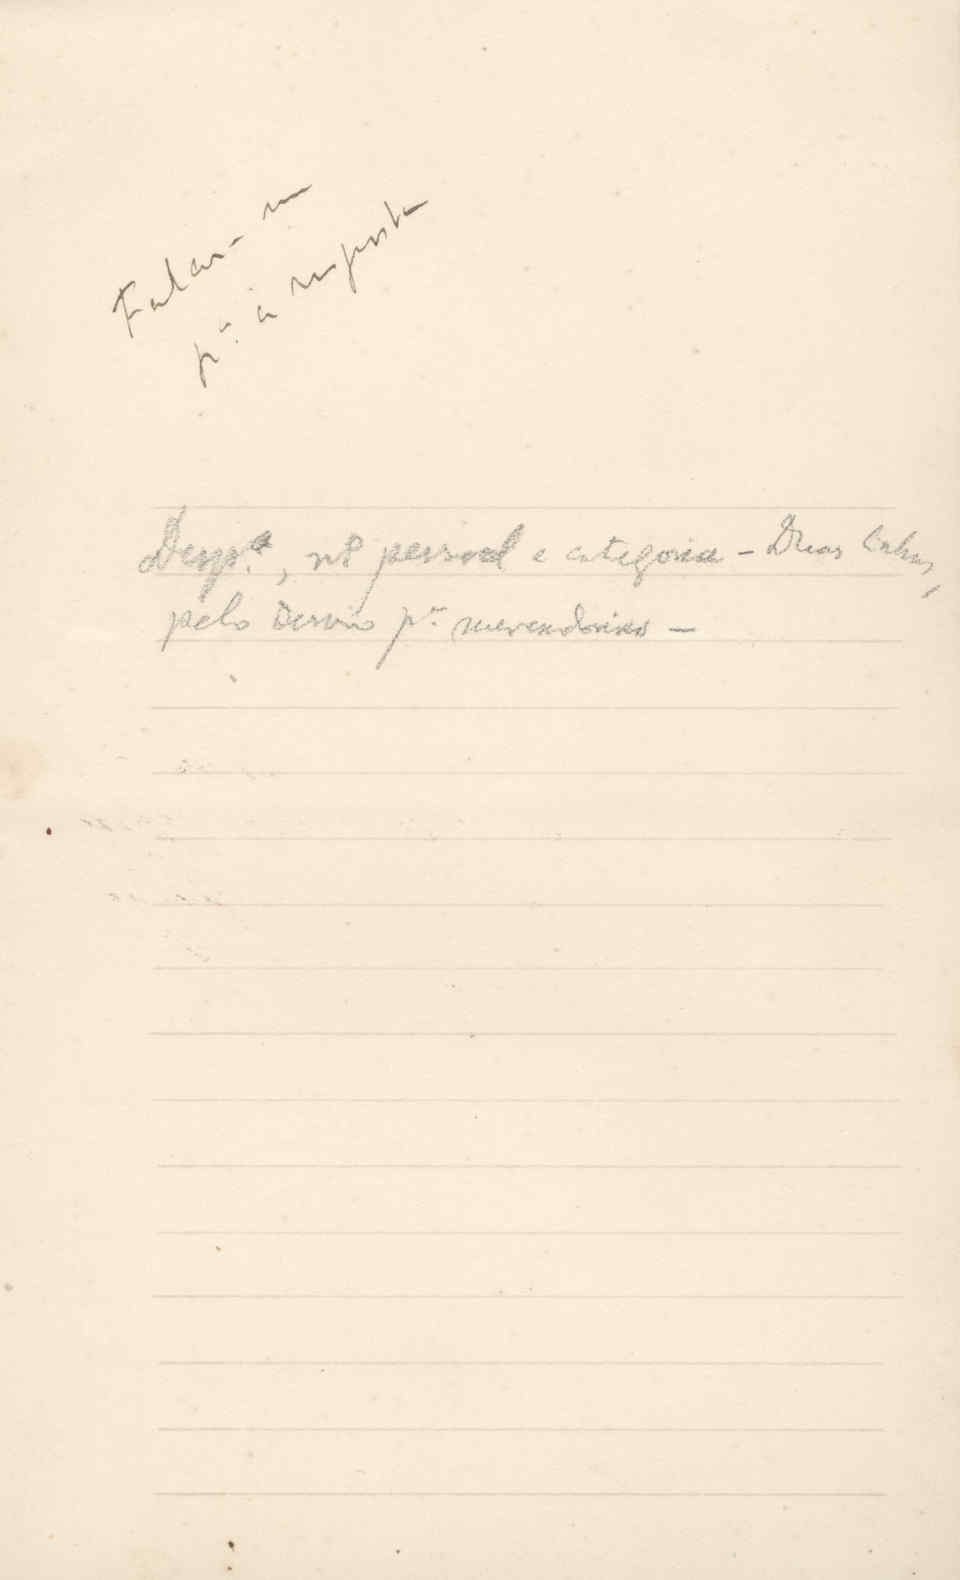 Falar-me
pª a resposta
Despª, nº pessoal e categoria – Duas linhas,
pelo Desvio pª